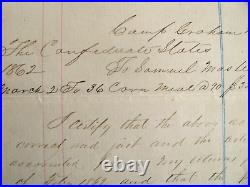 Camp Graham
The Confederate States
1862 To Samuel Mas
March 2 To 36 Corn meal @ 70
I certify that the above
correct and just and the
accounted for on my
of Feby 1862 and that the